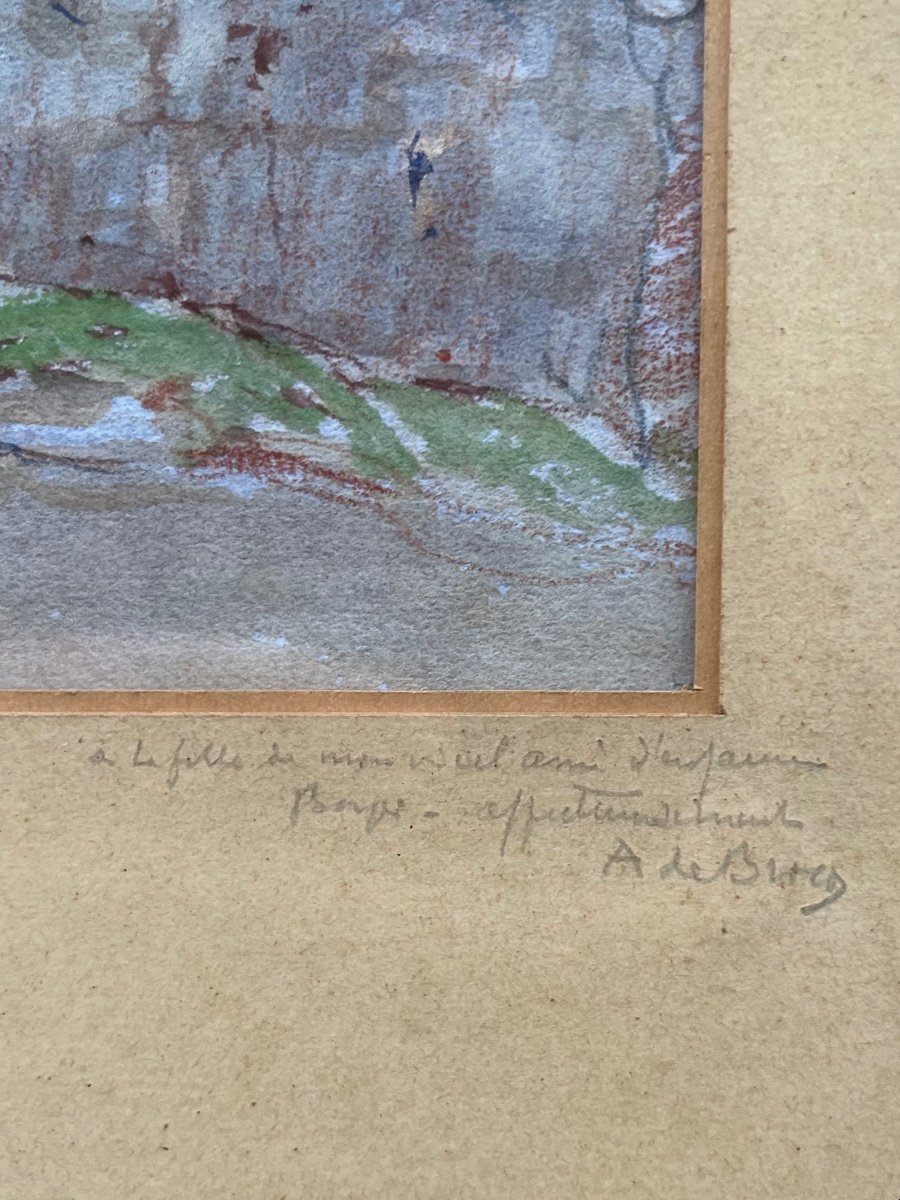 à la fille de mon vieil ami d'enfance
affectueusement
A de Broca